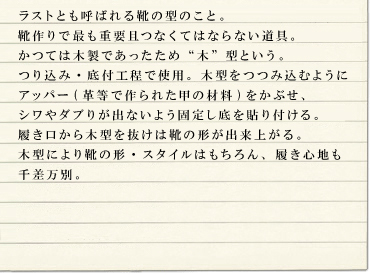 ラストとも呼ばれる靴の型のこと。
靴作りで最も重要且つなくてはならない道具。
かつては木製であったため“木”型という。
つり込み・底付工程で使用。木型をつつみ込むように
アッパー(革等で作られた甲の材料)をかぶせ、
シワやダブりが出ないよう固定し底を貼り付ける。
履き口から木型を抜けは靴の形が出来上がる。
木型により靴の形・スタイルはもちろん、履き心地も
千差万別。